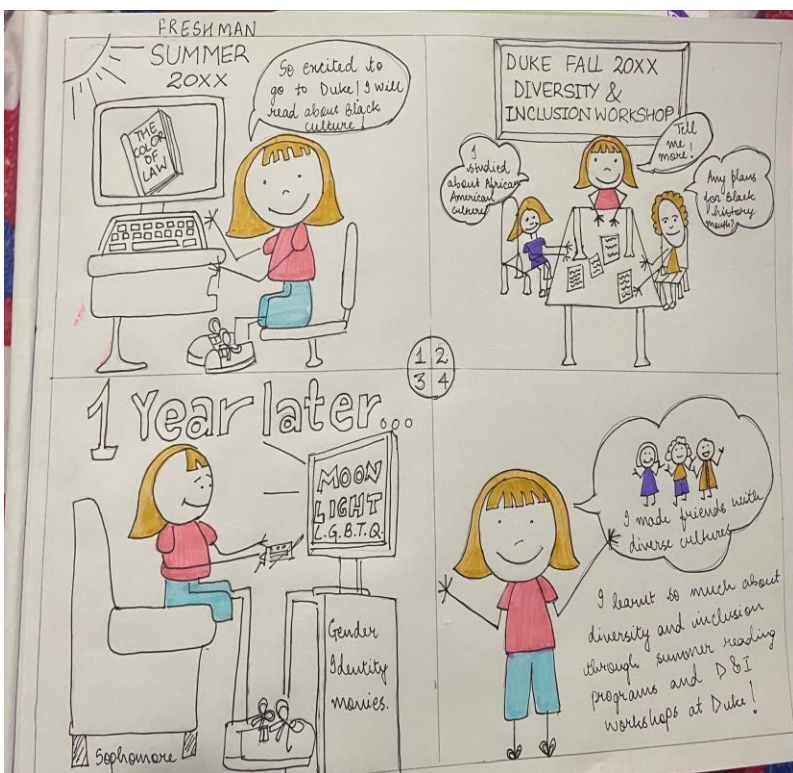 FRESHMAN
SUMMER
20XX
So excited to
go to Duke! I will
read about Black
culture!
THE
COLOR
OF
LAW
DUKE FALL 20XX
DIVERSITY &
INCLUSION WORKSHOP
I
studied
about African
American
culture!
Tell
me
more!
Any plans
for Black
history
month?
1 2
3 4
1 Year later...
MOON
LIGHT
L.G.B.T.Q.
Gender
Identity
movies.
Sophomore
I made friends with
diverse cultures
I learnt so much about
diversity and inclusion
through summer reading
programs and D&I
workshops at Duke!